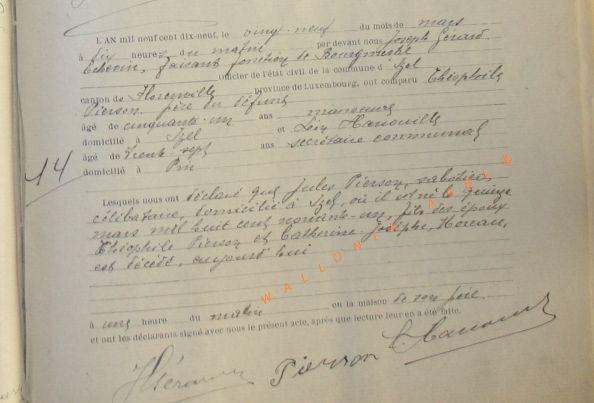 L'AN mil neuf cent dix-neuf, le vingt-neuf du mois de mars
à dix heures du matin par devant nous Joseph Gérard
Echevin, faisant fonction de Bourgmestre
officier de l'état civil de la commune d'Izel
canton de Florenville province de Luxembourg, ont comparu Théophile
Pierson, père du défunt
âgé de cinquante-un ans manœuvre
domicilié à Izel et Léon Hanouille
âgé de trente-sept ans secrétaire communal
domicilié à Pin
14
Lesquels nous ont déclaré que Jules Pierson, sabotier,
célibataire, domicilié à Izel, où il est né le quinze
mars mil huit cent nonante-un, fils des époux
Théophile Pierson et Catherine Josephe,
est décédé, aujourd'hui
à une heure du matin en la maison de son père
et ont les déclarants signé avec nous le présent acte, après que lecture leur en a été faite.
JGérard Pierson
WALLONIE